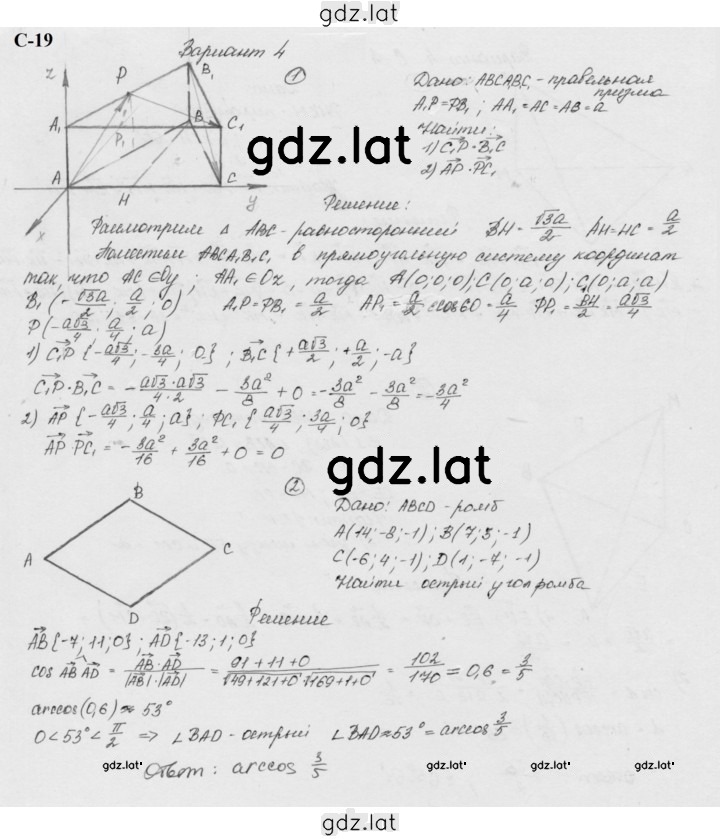 gdz.lat
С-19
Вариант 4
z P B₁ A₁ P₁ B C₁ A H C y x
①
Дано: ABCA₁B₁C₁ - правельная призма
A₁P = PB₁ ; AA₁ = AC = AB = a
Найти:
1) C₁P · B₁C
2) AP · PC₁
gdz.lat
Решение:
Рассмотрим Δ ABC - равносторонний BH = √3a/2 AH = HC = a/2
Поместим ABCA₁B₁C₁ в прямоугольную систему координат
так, что AC ∈ Oy ; AA₁ ∈ Oz, тогда A(0;0;0); C(0;a;0); C₁(0;a;a)
B₁(-√3a/2 ; a/2 ; 0) A₁P = PB₁ = a/2 AP₁ = a/2 cos60 = a/4 PP₁ = BH/2 = a√3/4
P(-a√3/4 ; a/4 ; a)
1) C₁P {-a√3/4 ; -3a/4 ; 0} ; B₁C {+a√3/2 ; +a/2 ; -a}
C₁P · B₁C = -a√3·a√3/4·2 - 3a²/8 + 0 = -3a²/8 - 3a²/8 = -3a²/4
2) AP {-a√3/4 ; a/4 ; a} ; PC₁ {a√3/4 ; 3a/4 ; 0}
AP · PC₁ = -3a²/16 + 3a²/16 + 0 = 0
gdz.lat
②
B A C D
Дано: ABCD - ромб
A(14; -8; -1) ; B(7; 3; -1)
C(-6; 4; -1) ; D(1; -7; -1)
Найти острый угол ромба
Решение
AB {-7; 11; 0} ; AD {-13; 1; 0}
cos AB AD = AB · AD/|AB|·|AD| = 91 + 11 + 0/√49+121+0 √169+1+0 = 102/170 = 0,6 = 3/5
arccos(0,6) ≈ 53°
0 < 53° < π/2 ⇒ ∠BAD - острый ∠BAD ≈ 53° = arccos 3/5
Ответ: arccos 3/5
gdz.lat gdz.lat gdz.lat
gdz.lat